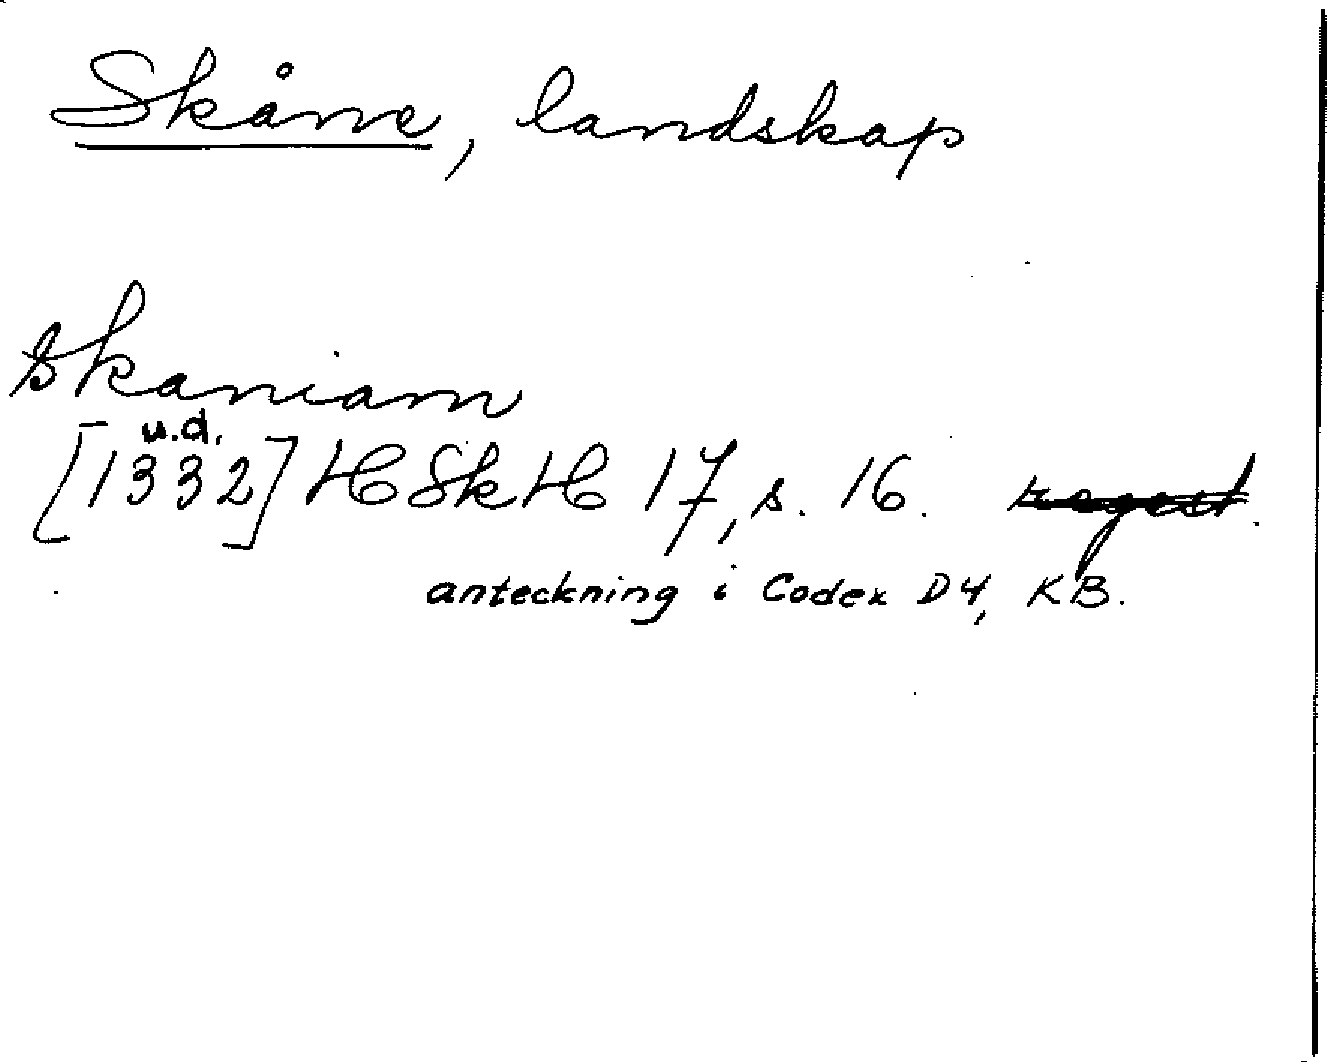 Skåne, landskap
skaniam
u.d.
[1332] HSkH 17, s. 16. regest.
anteckning i Codex D4, KB.